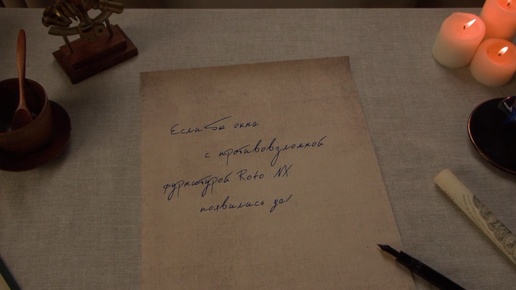 Если бы окна
с противовзломной
фурнитурой Roto NX
появились за